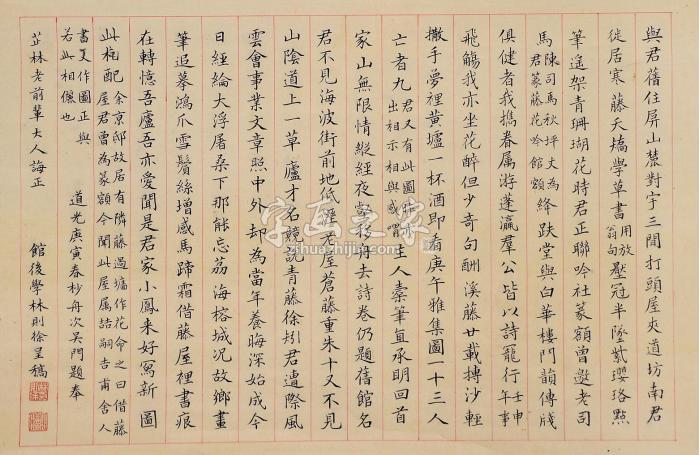 與君舊住屏山麓對宇三間打頭屋夾道坊南君
徙居寒藤夭矯學草書用放翁句壓冠半墜紫瓔珞點
筆遙架青珊瑚花時君正聯吟社篆額曾邀老司
馬陳司馬秋坪丈為君篆藤花吟館額絳趺堂與白華樓鬥韻傳牋
俱健者我攜眷屬游蓬瀛羣公皆以詩龍行壬申年事
飛觴我亦坐花醉但少奇句酬溪藤廿載摶沙輕
撒手夢裡黃壚一杯酒即看庚午雅集圖一十三人
亡者九君又有此圖昨亦出相示相與感喟主人橐筆直承明回首
家山無限情縱經夜壑移舟去詩卷仍題舊館名
君不見海波街前地低窪老屋蒼藤重朱十又不見
山陰道上一草廬才名競說青藤徐矧君遭際風
雲會事業文章照中外却為當年養晦深始成今
日經綸大浮屠桑下那能忘荔海榕城況故鄉畫
筆追摹鴻爪雪鬢絲增感馬蹄霜借藤屋裡書痕
在轉憶吾廬吾亦愛聞是君家小鳳来好寫新圖
此枙配余京邸故居有隣藤過墻作花命之曰借藤屋君曾為篆額今聞此屋屬詰嗣吉甫舍人
書更作圖正與若此相儷也 道光庚寅春杪舟次吳門題奉
芷林老前輩大人誨正 館後學林則徐呈稿
字画之家
zihuazhijia.com